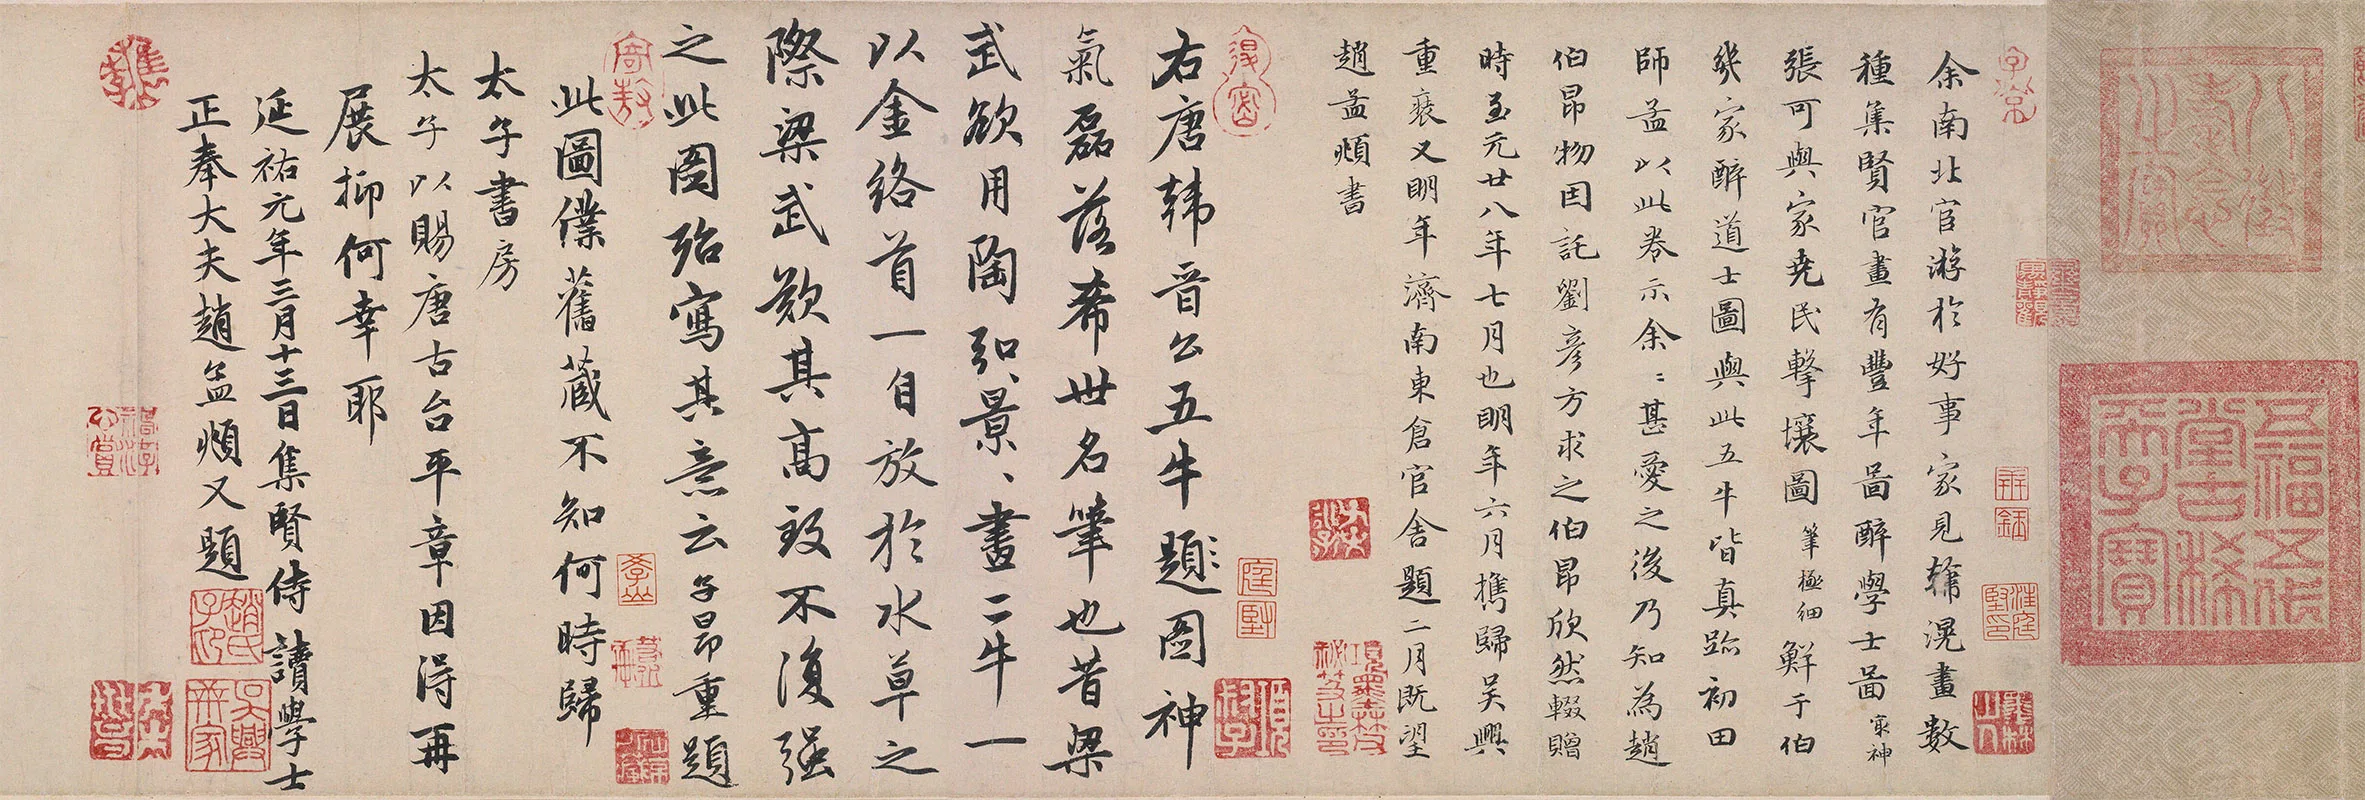 八徵耄念之寶
五福五代堂古稀天子寶
余南北官游於好事家見韓滉畫數
種集賢官畫有豐年啚醉學士啚㝡神
張可與家堯民擊壤圖筆極細鮮于伯
幾家醉道士圖與此五牛皆真跡初田
師孟以此卷示余〻甚愛之後乃知為趙
伯昂物因託劉彥方求之伯昂欣然輟贈
時至元廿八年七月也明年六月攜歸吳興
重裝又明年濟南東倉官舍題二月既望
趙孟頫書
右唐韓晉公五牛題圖神
氣磊落希世名筆也昔梁
武欲用陶弘景〻畫二牛一
以金絡首一自放於水草之
際梁武歎其高致不復強
之此圖殆寫其意云子昂重題
此圖僕舊藏不知何時歸
太子書房
太子以賜唐古台平章因得再
展抑何幸耶
延祐元年三月十三日集賢侍讀學士
正奉大夫趙孟頫又題